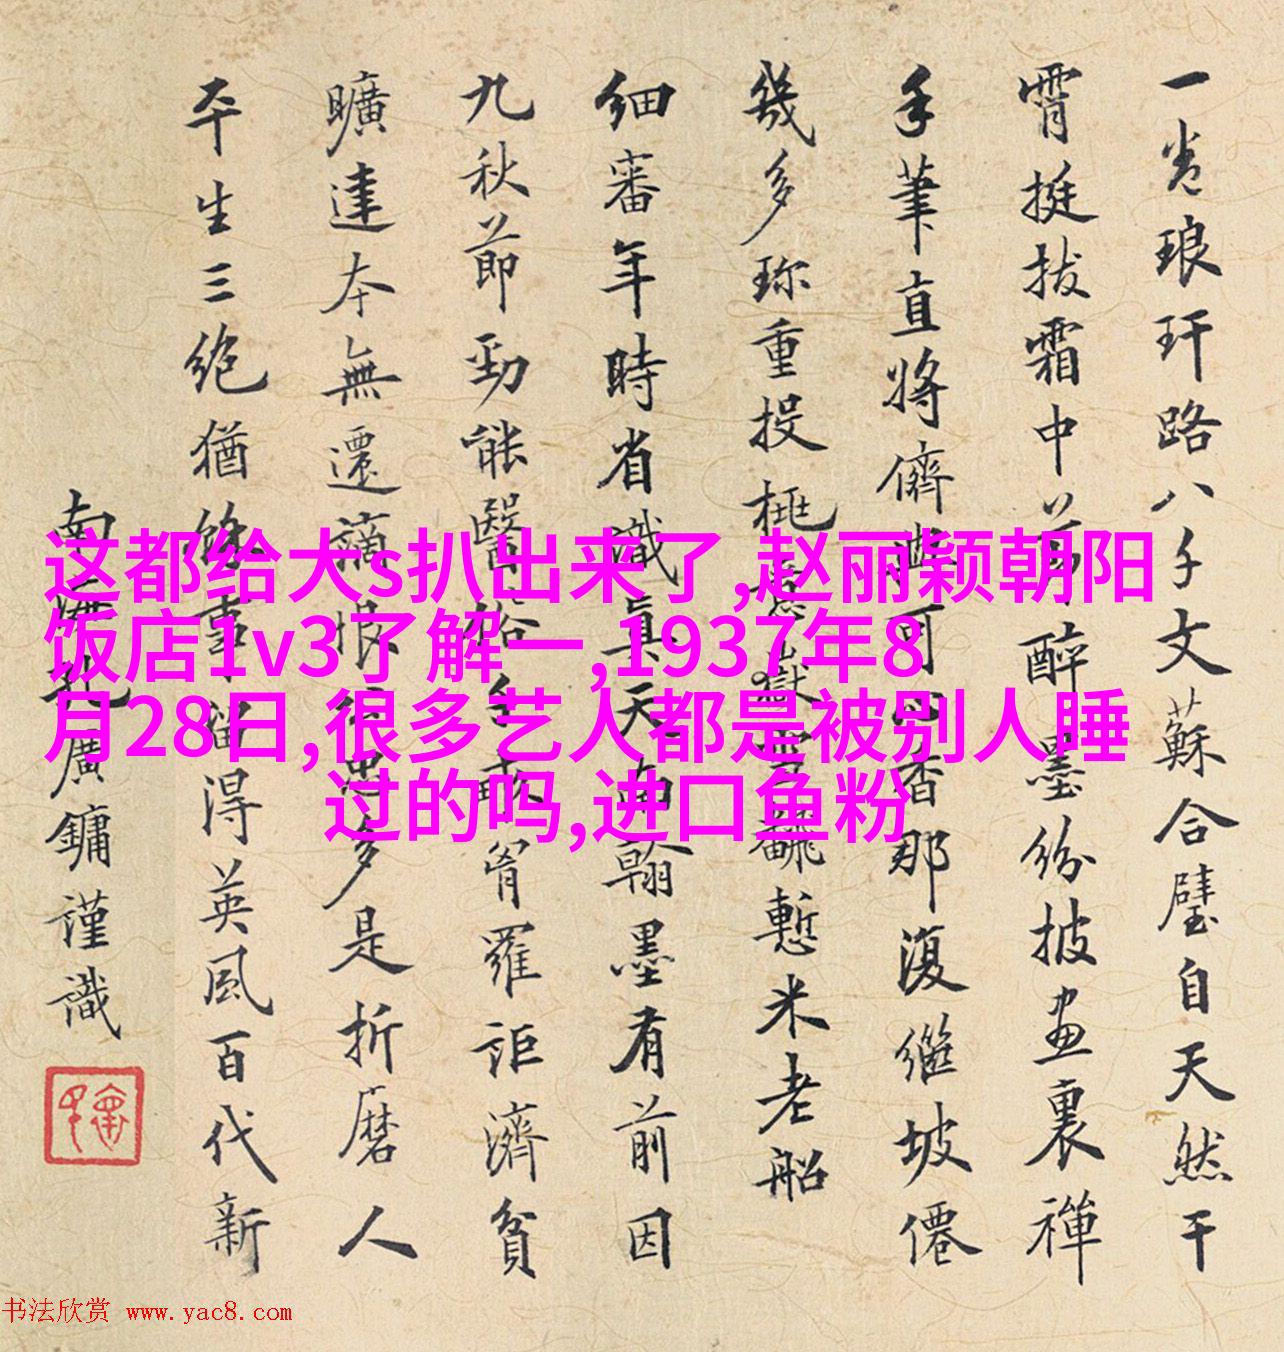 一卷琅玕路八千文蘇合璧自天然干
霄挺拔霜中節醉墨紛披畫裏禪
手筆直將儕與可心香那復繼坡僊
幾多珍重投桃意嶽雪飜慙米老船
細審年時省識真天南翰墨有前因
九秋節勁能醫俗千畝胷羅詎濟貧
曠達本無遷謫恨思多是折磨人
平生三絕猶餘事留得英風百代新
南海孔廣鏞謹識
这都给大s扒出来了,赵丽颖朝阳
饭店1v3了解一,1937年8
月28日,很多艺人都是被别人睡
过的吗,进口鱼粉
书法欣赏 www.yac8.com